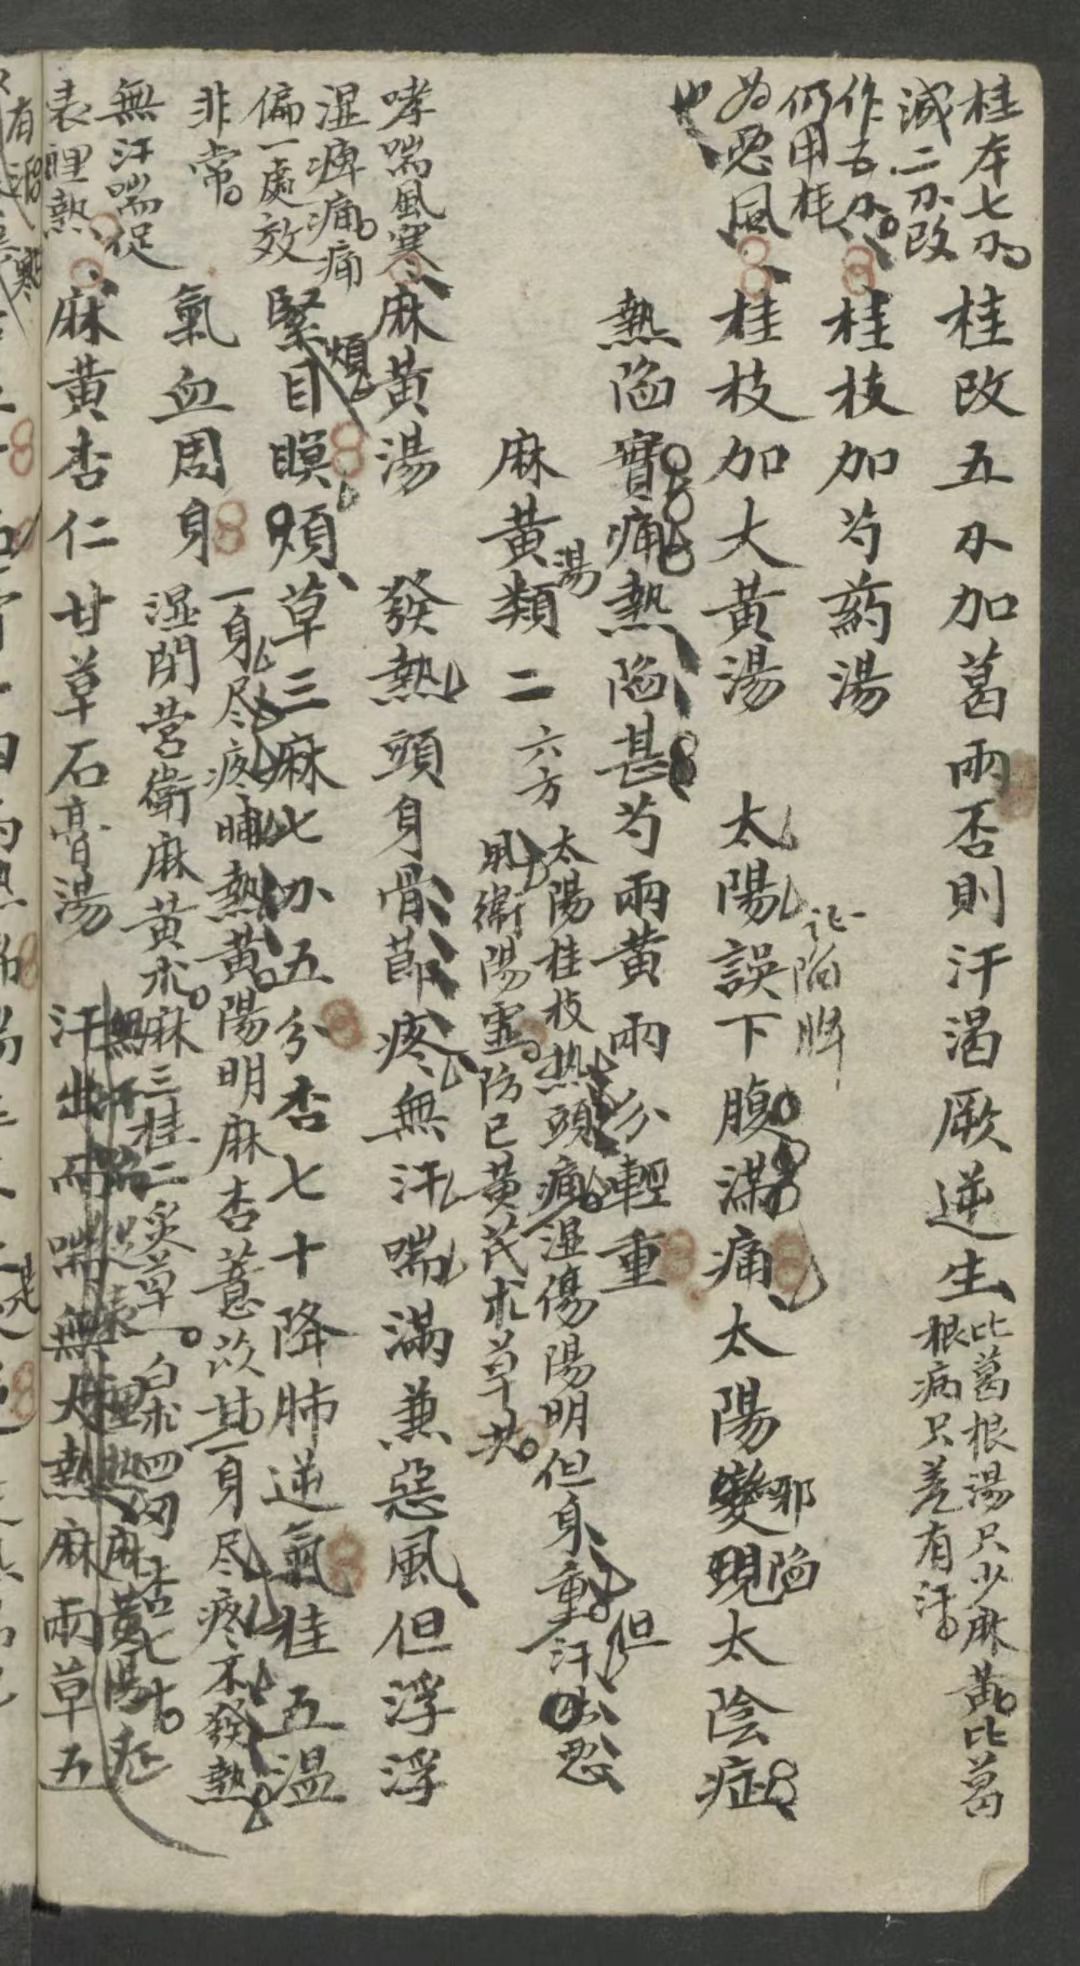 桂本七分
減二分改
作五分
仍用桂
為惡風
也
桂改五分加葛兩否則汗渴厥逆生
比葛根湯只少麻黃比葛
根病只差有汗
桂枝加芍藥湯
桂枝加大黃湯
太陽誤下腹滿痛太陽變現太陰症
邪陷
熱陷實痛熱陷甚芍兩黃兩分輕重
麻黃湯類二
六方
太陽桂枝热頭痛湿傷陽明但身重汗出惡
但
風衛陽虛防已黃芪朮草共
哮喘風寒
麻黃湯
發熱頭身骨節疼無汗喘滿兼惡風但浮浮
湿痺痛痛
偏一處效
非常
緊目瞑煩草三麻七分五分杏七十降肺逆氣桂五溫
煩
氣血周身
一身尽疼晡熱黄陽明麻杏薏苡甘一身尽疼不發熱
湿閉营衛麻黄朮麻三桂二炙草一白朮四匁杏七十
無汗喘促
表裡熱
麻黃杏仁甘草石膏湯
汗出而喘無大熱麻兩草五